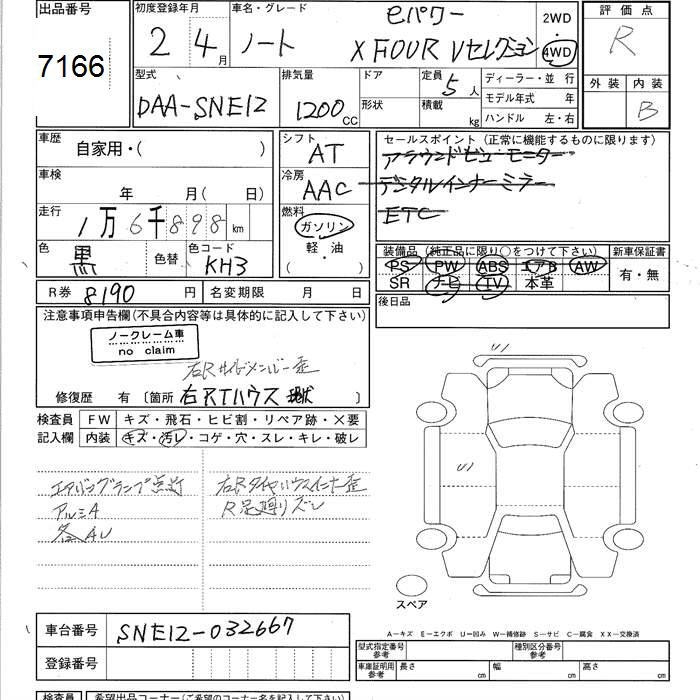 出品番号
7166
初度登録年月
2 4月
車名・グレード
ノート
eパワー
X FOUR Vセレクション
2WD
・
4WD
評価点
R
外装 内装
B
型式
DAA-SNE12
排気量
1200cc
ドア
形状
定員 5人
積載 kg
ディーラー・並 行
モデル年式 年
ハンドル 左・右
車歴
自家用・( )
車検
年 月( 日)
走行
1万6千898km
色
黒
色替
色コード
KH3
シフト
AT
冷房
AAC
燃料
ガソリン
・
軽・油
( )
セールスポイント(正常に機能するものに限ります)
アラウンドビューモニター
デジタルインナーミラー
ETC
装備品(純正品に限り○をつけて下さい)
PS PW ABS エアB AW
SR ナビ TV 本革
新車保証書
有・無
後日品
R券 8190円
名変期限 月 日
注意事項申告欄(不具合内容等は具体的に記入して下さい)
ノークレーム車
no claim
右Rサイドメンバー歪
修復歴 有 〔箇所 右RTハウス 現状 〕
検査員
記入欄
FW キズ・飛石・ヒビ割・リペア跡・×要
内装 キズ・汚レ・コゲ・穴・スレ・キレ・破レ
エアバッグランプ点灯
アルミA
各AU
右Rタイヤハウスインナー歪
R足廻りズレ
スペア
A-キズ E-エクボ U-凹み W-補修跡 S-サビ C-腐食 XX-交換済
車台番号
SNE12-032667
登録番号
型式指定番号
参考
種別区分番号
参考
車庫証明用
参考
長さ cm
幅 cm
高さ cm
検査員
希望出品コーナー(ご希望のコーナー名を記入して下さい)